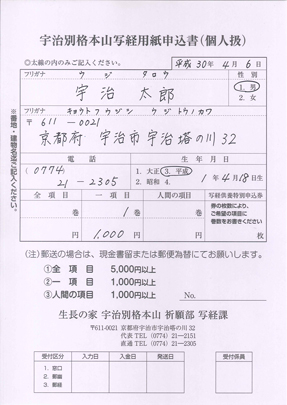 宇治別格本山写経用紙申込書(個人扱)
◎太線の内のみご記入ください。 平成30年4月6日
フリガナ ウジ タロウ 性別
宇治 太郎 1. 男
2. 女
フリガナ キョウトフウジシ ウジトウノカワ
〒611-0021
京都府 宇治市宇治塔の川32
※番地・建物名迄ご記入ください。
電話 生年月日
(0774)
21-2305
1. 大正 3. 平成
2. 昭和 4. 1年4月18日生
全項目 一項目 人間の項目 写経供養特別申込券
巻 1巻 巻 券の枚数により、
ご希望の項目に
巻数をお書きください
円 1,000円 円 枚
(注)郵送の場合は、現金書留または郵便為替にてお願いします。
①全項目 5,000円以上
②一項目 1,000円以上
③人間の項目 1,000円以上 No.
生長の家 宇治別格本山 祈願部 写経課
〒611-0021 京都府宇治市宇治塔の川32
代表 TEL (0774) 21-2151
直通 TEL (0774) 21-2305
受付区分 入力日 入金日 発送日 受付係員
1. 窓口
2. 郵振
3. 郵送